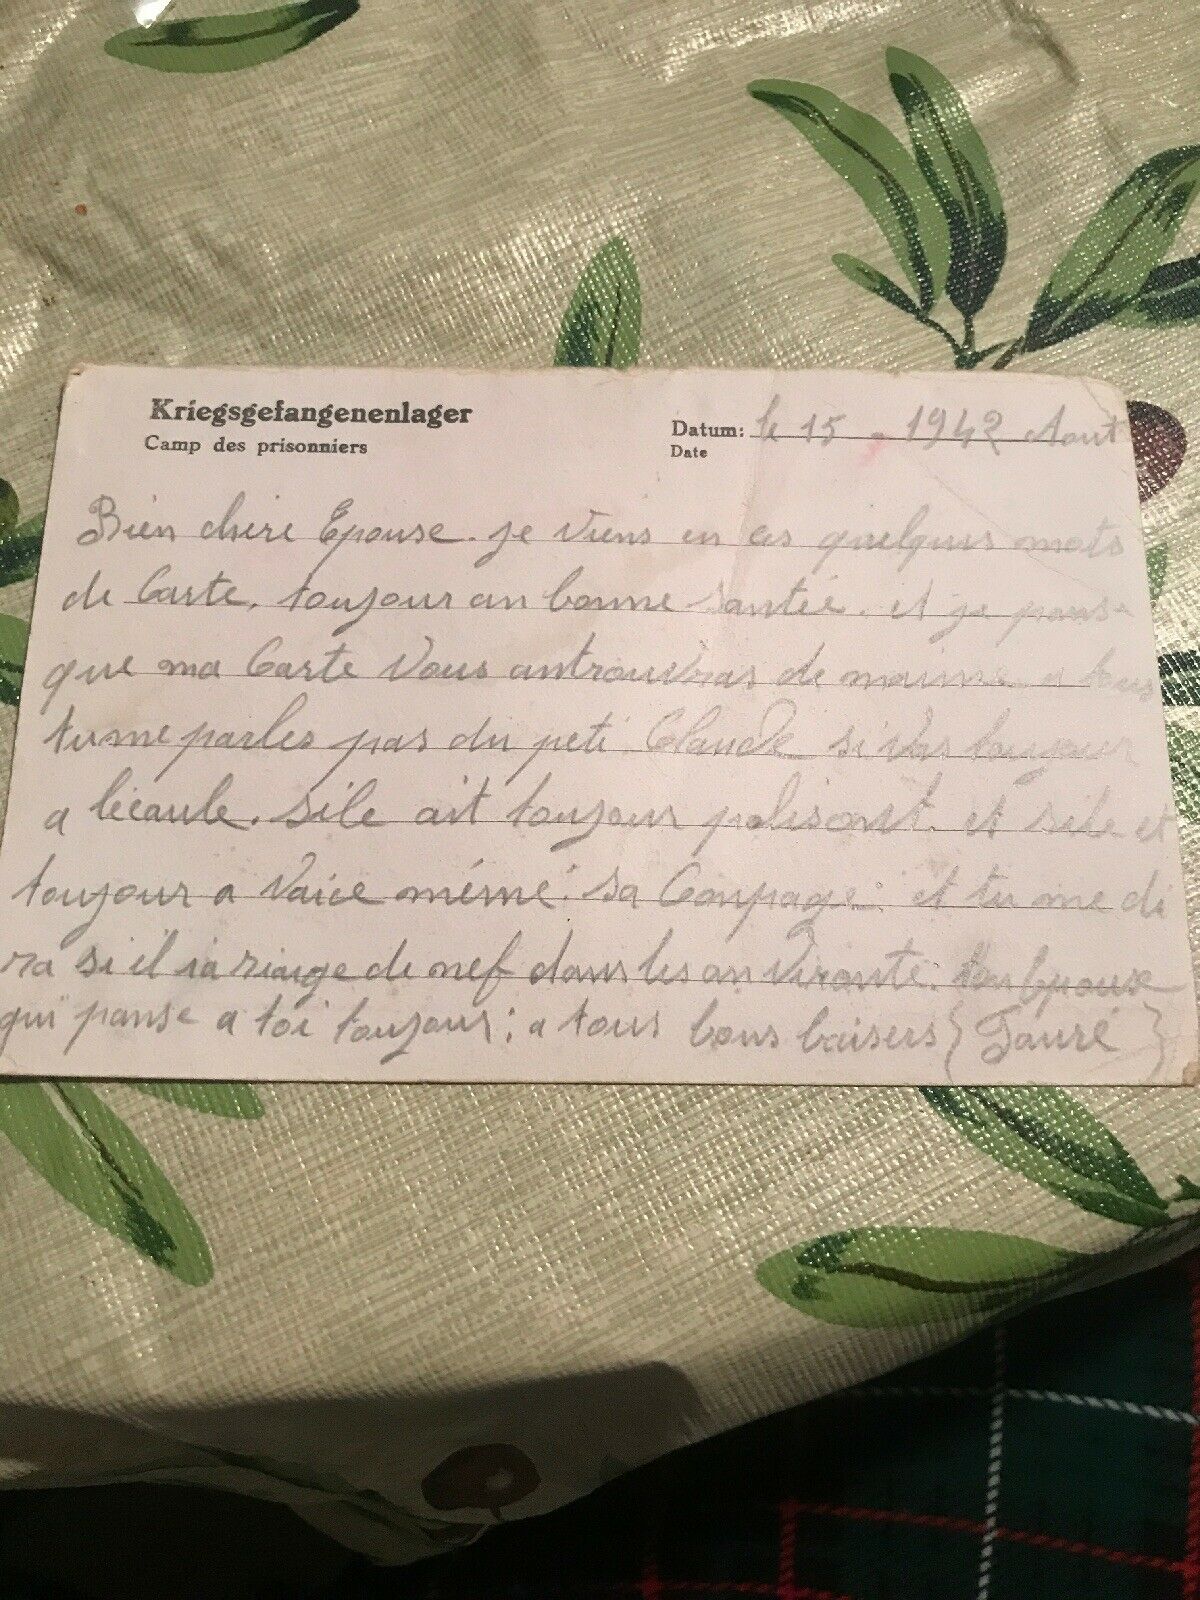 Kriegsgefangenenlager
Camp des prisonniers
Datum: le 15 - 1942 Aout
Date
Bien chere Epouse. je viens en ces quelques mots
de Carte. toujour an bonne santée. et je panse
que ma Carte Vous antrouvras de maime a tous
tu me parles pas du peti Claude si vas toujour
a lecaule. sile ait toujour polisont. et sile et
toujour a Vaice mémé. sa Conpage. et tu me di
ra si il ia riange de nef dans les an Vironte. ton Epoux
qui panse a toi toujour; a tous bons baisers { Fauré }